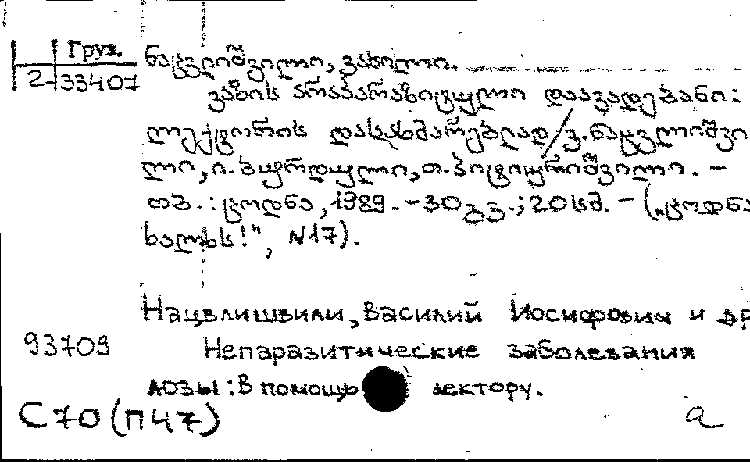 Груз.
2-33407
ნაცვლიშვილი, ვასილი.
ვაზის არაპარაზიტული დაავადებანი:
ლექტორის დასახმარებლად / ვ. ნაცვლიშვი-
ლი, ი. ბურდული, თ. ბიტიურიშვილი. -
თბ.: ცოდნა, 1989. - 30 გვ.; 20 სმ. - („ცოდნა
ხალხს!", N17).
Нацвлишвили, Василий Иосифович и др
93709
Непаразитические заболевания
лозы: В помощь лектору.
С70(П47)
а